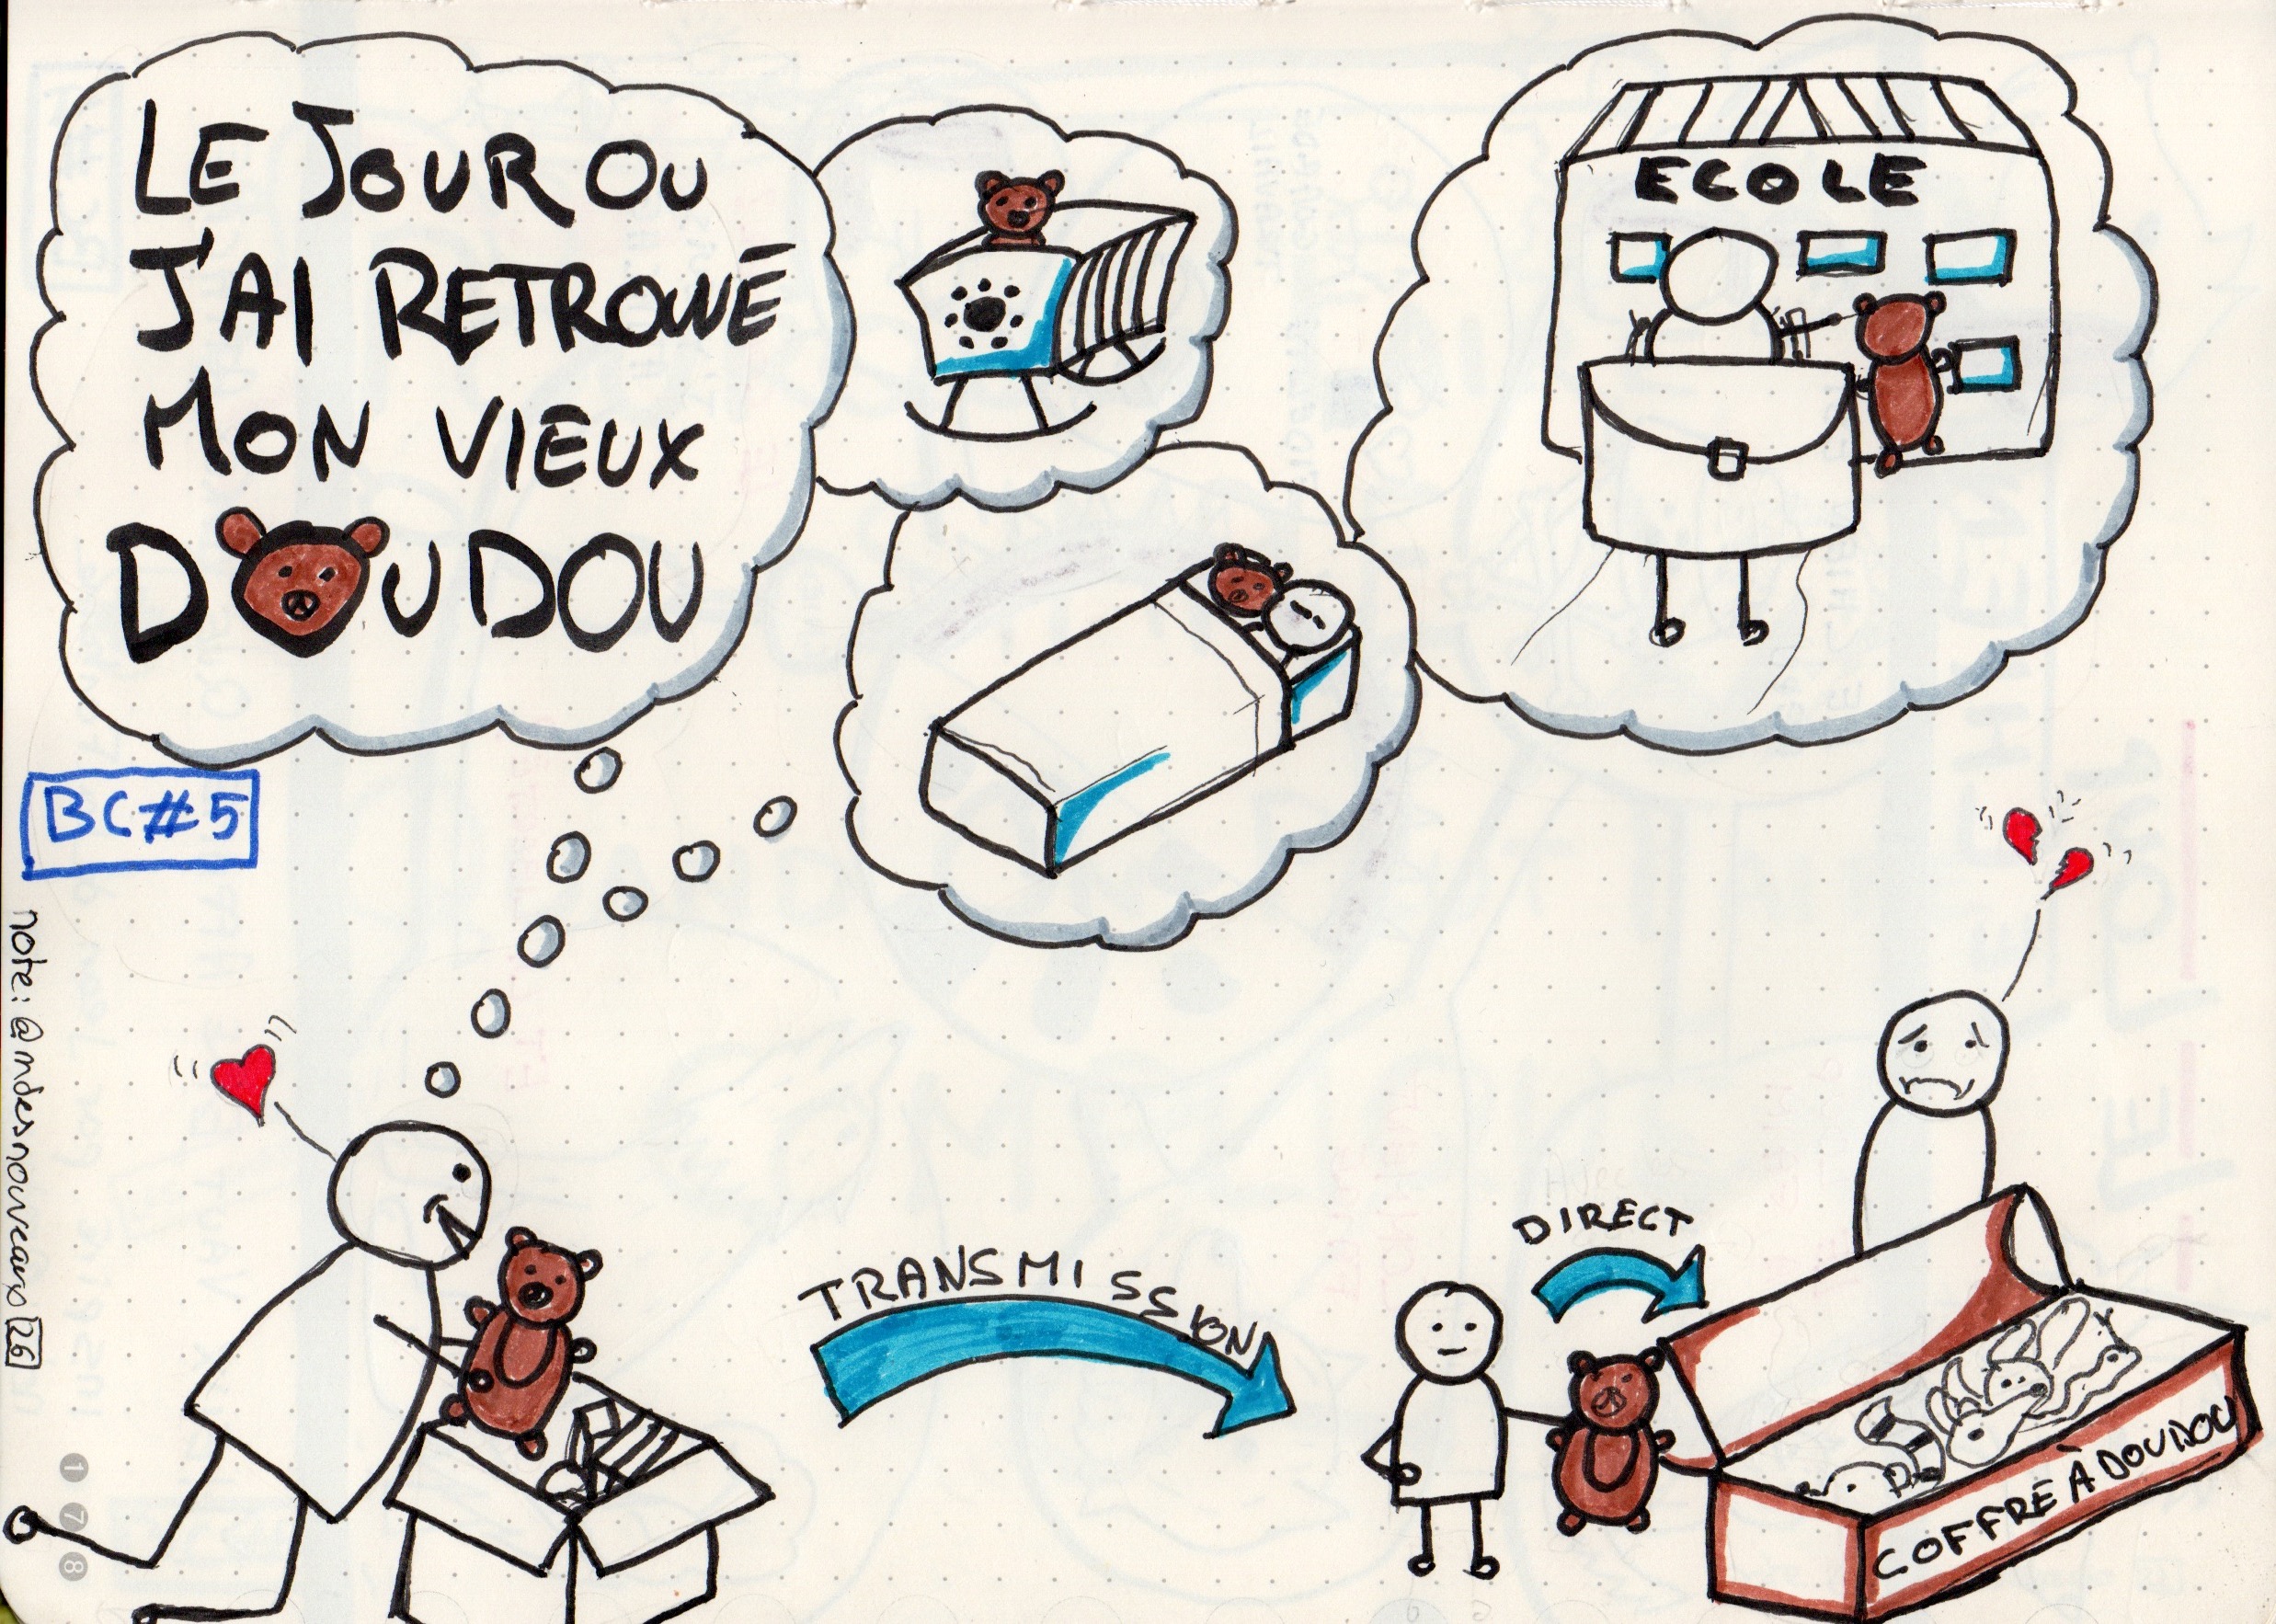 LE JOUR OU
J'AI RETROUVÉ
MON VIEUX
DOUDOU
ECOLE
BC#5
note: @mdesnouveaux 26
TRANSMISSION
DIRECT
COFFRE À DOUDOU
178